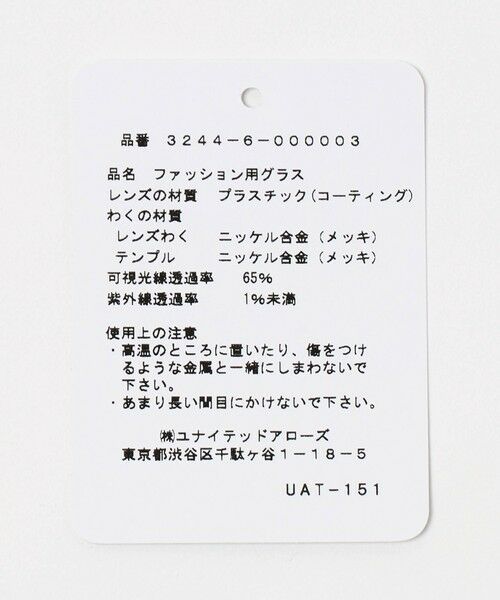 品番 3244-6-000003
品名 ファッション用グラス
レンズの材質 プラスチック(コーティング)
わくの材質
レンズわく ニッケル合金 (メッキ)
テンプル ニッケル合金 (メッキ)
可視光線透過率 65%
紫外線透過率 1%未満
使用上の注意
・高温のところに置いたり、傷をつけ
るような金属と一緒にしまわないで
下さい。
・あまり長い間目にかけないで下さい。
㈱ユナイテッドアローズ
東京都渋谷区千駄ヶ谷1-18-5
UAT-151